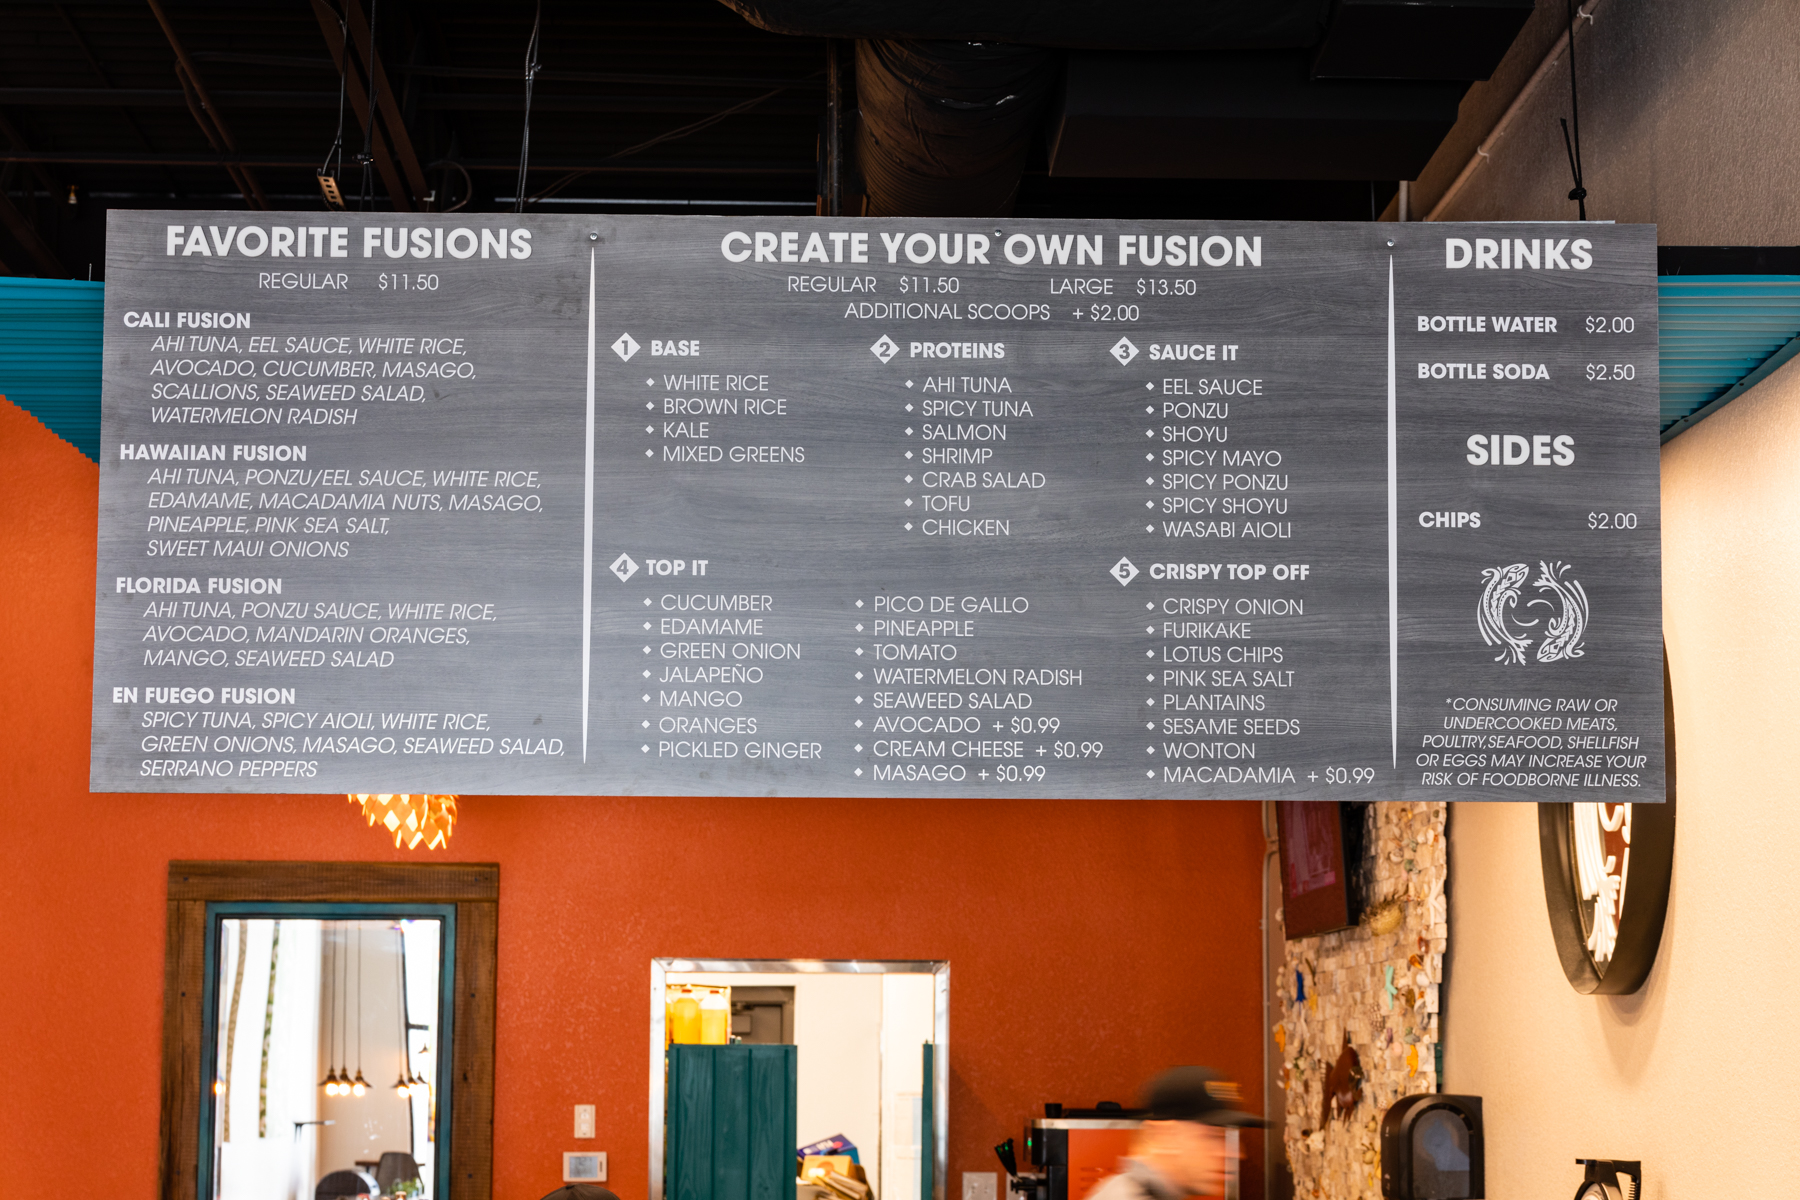 FAVORITE FUSIONS
REGULAR $11.50
CALI FUSION
AHI TUNA, EEL SAUCE, WHITE RICE,
AVOCADO, CUCUMBER, MASAGO,
SCALLIONS, SEAWEED SALAD,
WATERMELON RADISH
HAWAIIAN FUSION
AHI TUNA, PONZU/EEL SAUCE, WHITE RICE,
EDAMAME, MACADAMIA NUTS, MASAGO,
PINEAPPLE, PINK SEA SALT,
SWEET MAUI ONIONS
FLORIDA FUSION
AHI TUNA, PONZU SAUCE, WHITE RICE,
AVOCADO, MANDARIN ORANGES,
MANGO, SEAWEED SALAD
EN FUEGO FUSION
SPICY TUNA, SPICY AIOLI, WHITE RICE,
GREEN ONIONS, MASAGO, SEAWEED SALAD,
SERRANO PEPPERS
CREATE YOUR OWN FUSION
REGULAR $11.50 LARGE $13.50
ADDITIONAL SCOOPS + $2.00
1 BASE
WHITE RICE
BROWN RICE
KALE
MIXED GREENS
2 PROTEINS
AHI TUNA
SPICY TUNA
SALMON
SHRIMP
CRAB SALAD
TOFU
CHICKEN
3 SAUCE IT
EEL SAUCE
PONZU
SHOYU
SPICY MAYO
SPICY PONZU
SPICY SHOYU
WASABI AIOLI
4 TOP IT
CUCUMBER
EDAMAME
GREEN ONION
JALAPEÑO
MANGO
ORANGES
PICKLED GINGER
PICO DE GALLO
PINEAPPLE
TOMATO
WATERMELON RADISH
SEAWEED SALAD
AVOCADO + $0.99
CREAM CHEESE + $0.99
MASAGO + $0.99
5 CRISPY TOP OFF
CRISPY ONION
FURIKAKE
LOTUS CHIPS
PINK SEA SALT
PLANTAINS
SESAME SEEDS
WONTON
MACADAMIA + $0.99
DRINKS
BOTTLE WATER $2.00
BOTTLE SODA $2.50
SIDES
CHIPS $2.00
*CONSUMING RAW OR
UNDERCOOKED MEATS,
POULTRY,SEAFOOD, SHELLFISH
OR EGGS MAY INCREASE YOUR
RISK OF FOODBORNE ILLNESS.